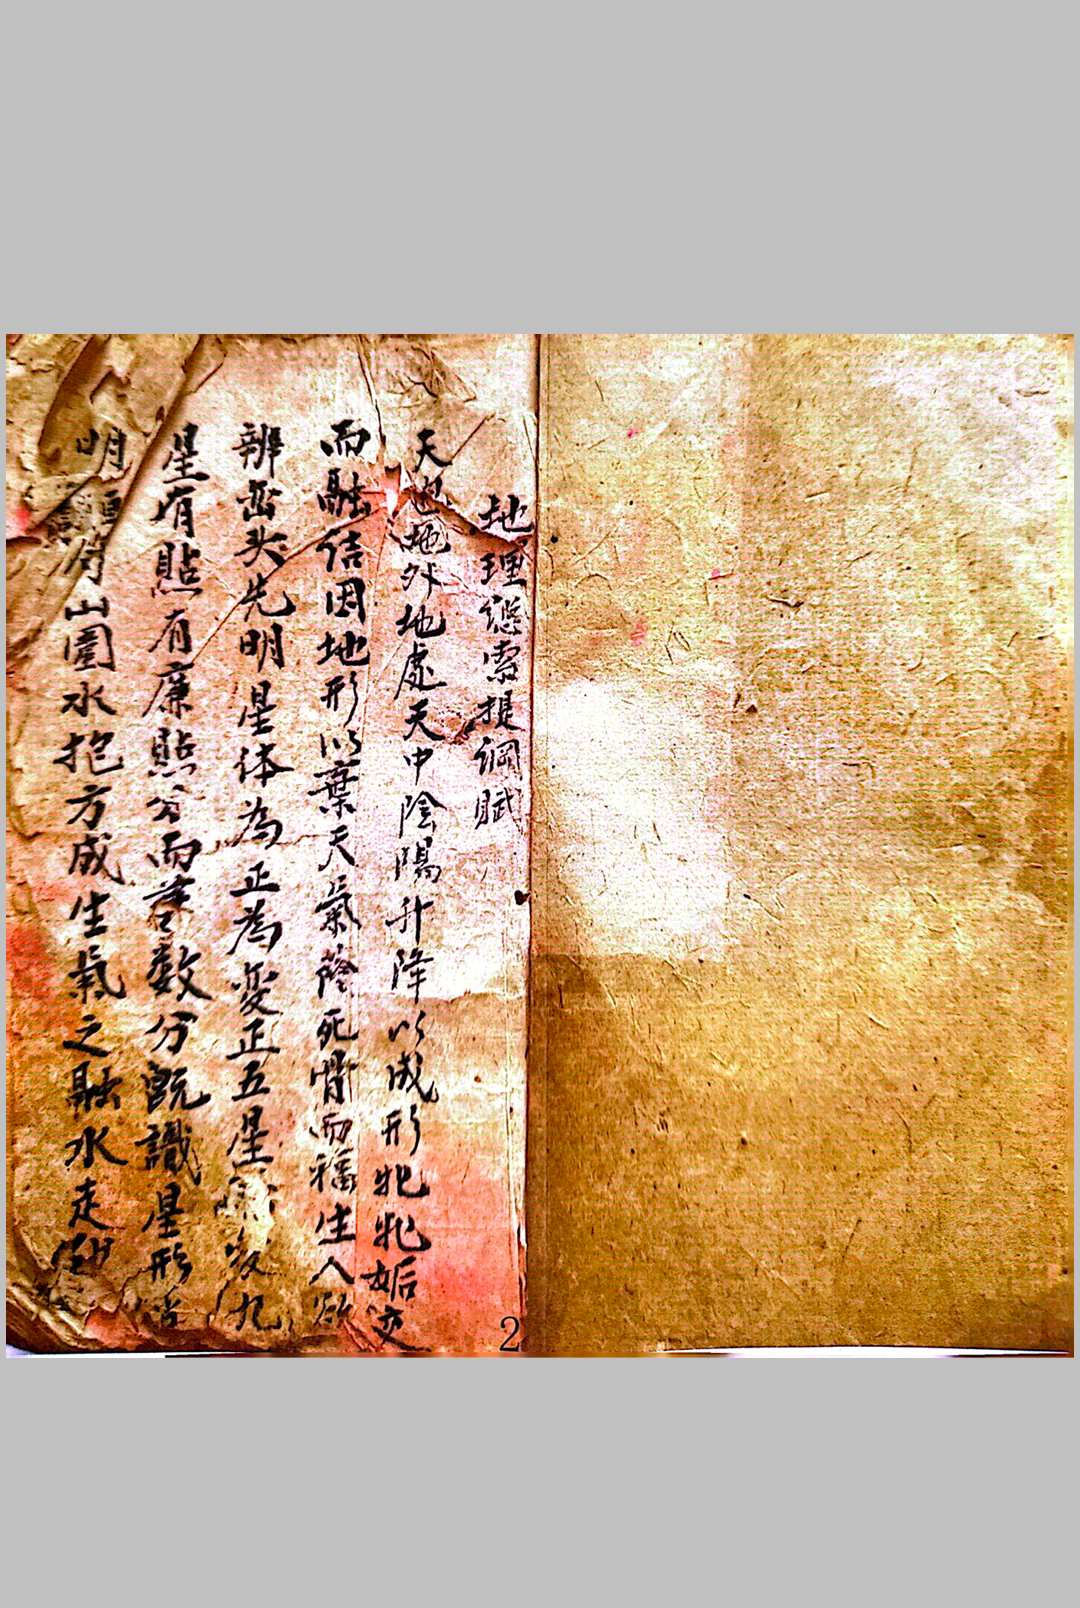 地理總索提綱賦
天包地外地處天中陰陽升降以成形牝牝姤交
而融结因地形以棄天氣蔭死骨而福生人欲
辨峦头先明星体為正為変正五星 変九
星有貼有廉貼分而書数分既識星形
明 山圍水抱方成生氣之融水走
2